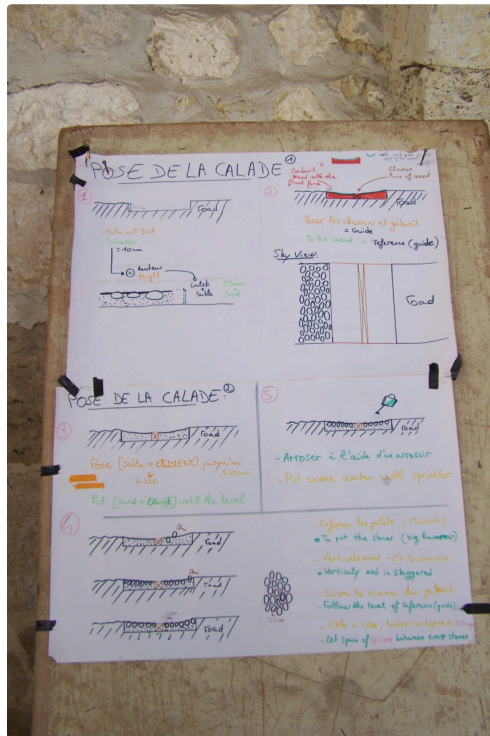 POSE DE LA CALADE ①
①
Road
- Take out dirt
= 10 cm
hauteur
height
Galet
+
Sable
Stones
+
Sand
②
Gabarit
Wood with the
final form
Chevron
line of wood
Road
Poser les chevrons et gabarit
= Guide
To put wood = reference (guide)
Sky View
Road
POSE DE LA CALADE ②
③
Road
Pose [Sable + CIMENT] jusqu'au
à sec
Put [sand + ciment] until the level
④
Road
Road
Road
⑤
Road
- Arroser à l'aide d'un arrosoir
- Put some water with sprinkler
- Enfoncer les galets (Massette)
• To put the stones (big hammer)
- Verticalement - En Quinconce
• Verticaly and in staggered
- Suivre le niveau du gabarit
- Follow the level of reference (guide)
- Côte à Côte, laisser un espace
- let space of between every stones